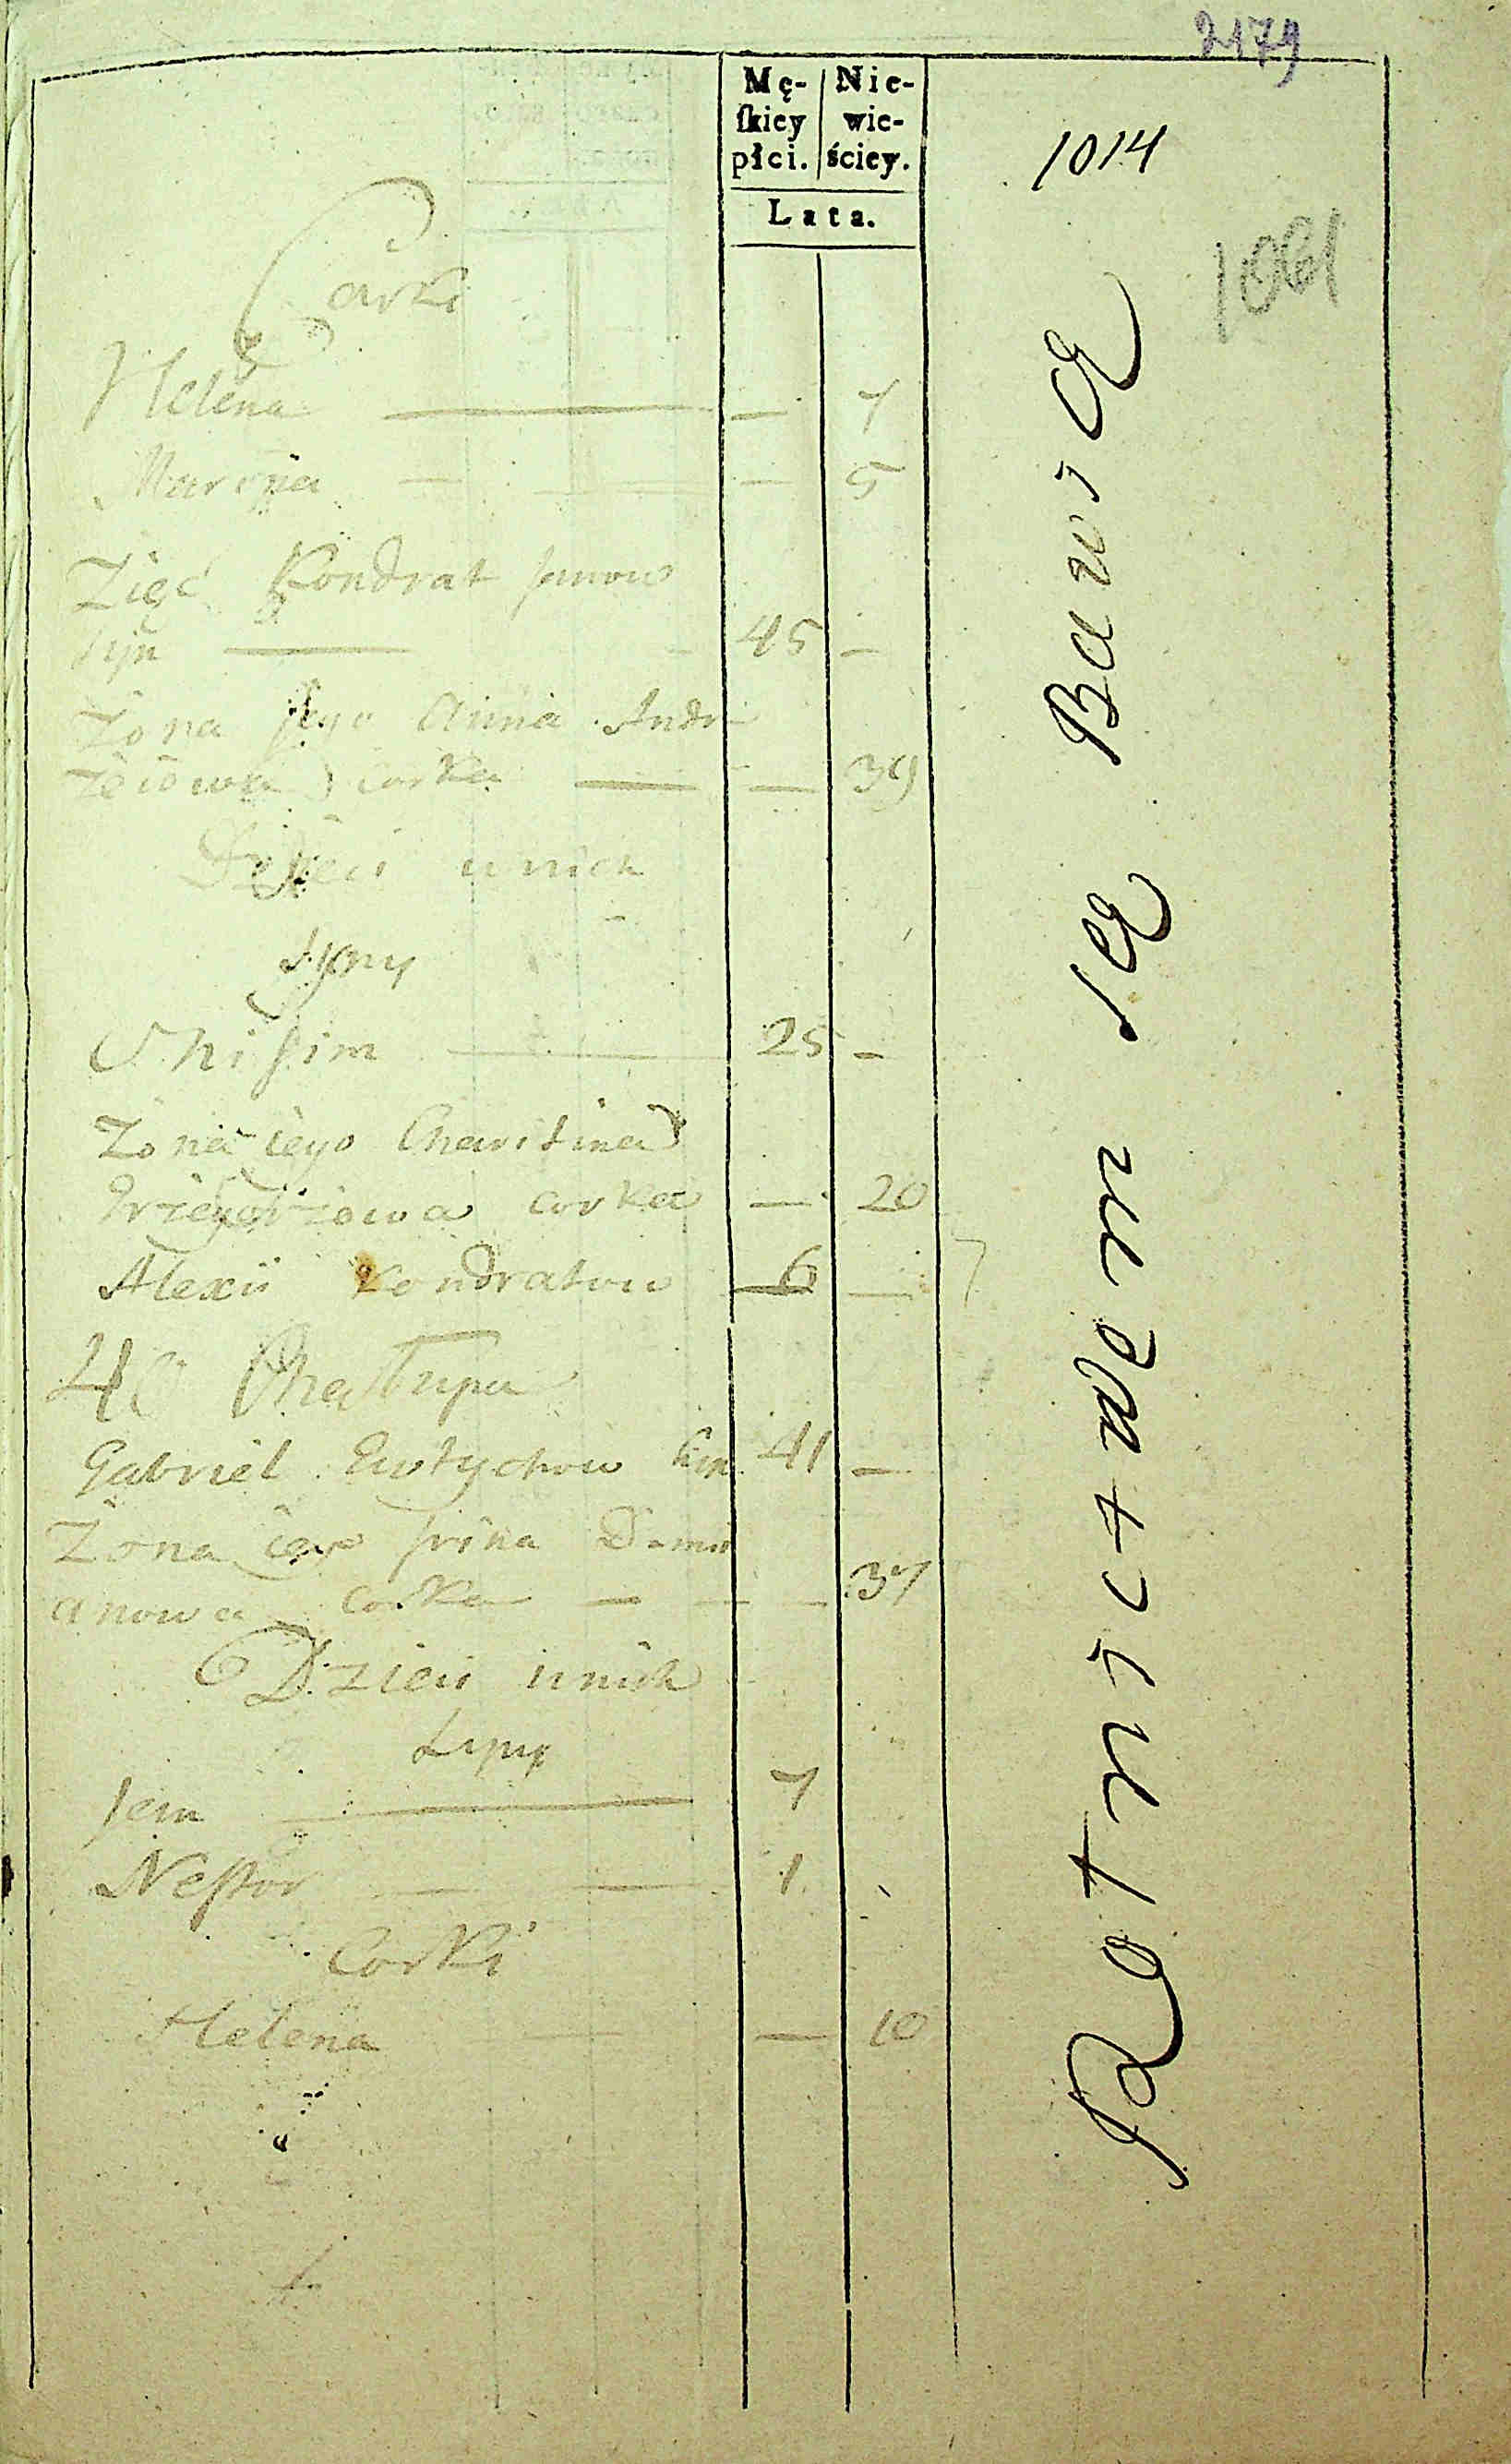 2179
Mę- Nie-
ſkiey wie-
płci. ściey.
Lata.
1014
1061
Corki
Helena — — 7
Maryja — — 5
Zięć Kondrat
syn — 45 —
Żona Jego Anna Andr
zeiowa corka — — 39
Dzieci u nich
Syny
Onisim — 25 —
Żona iego Charitina
Griegoriowa corka — 20
Alexii Kondratow 6 —
4a Chałupa
Gabriel Eutychow syn 41 —
Żona iego Irina Dami
anowa corka — — — 37
Dzieci u nich
Syny
— 7
Nestor — — 1
Corki
Helena — — 10
Rotnictwem się Bawią